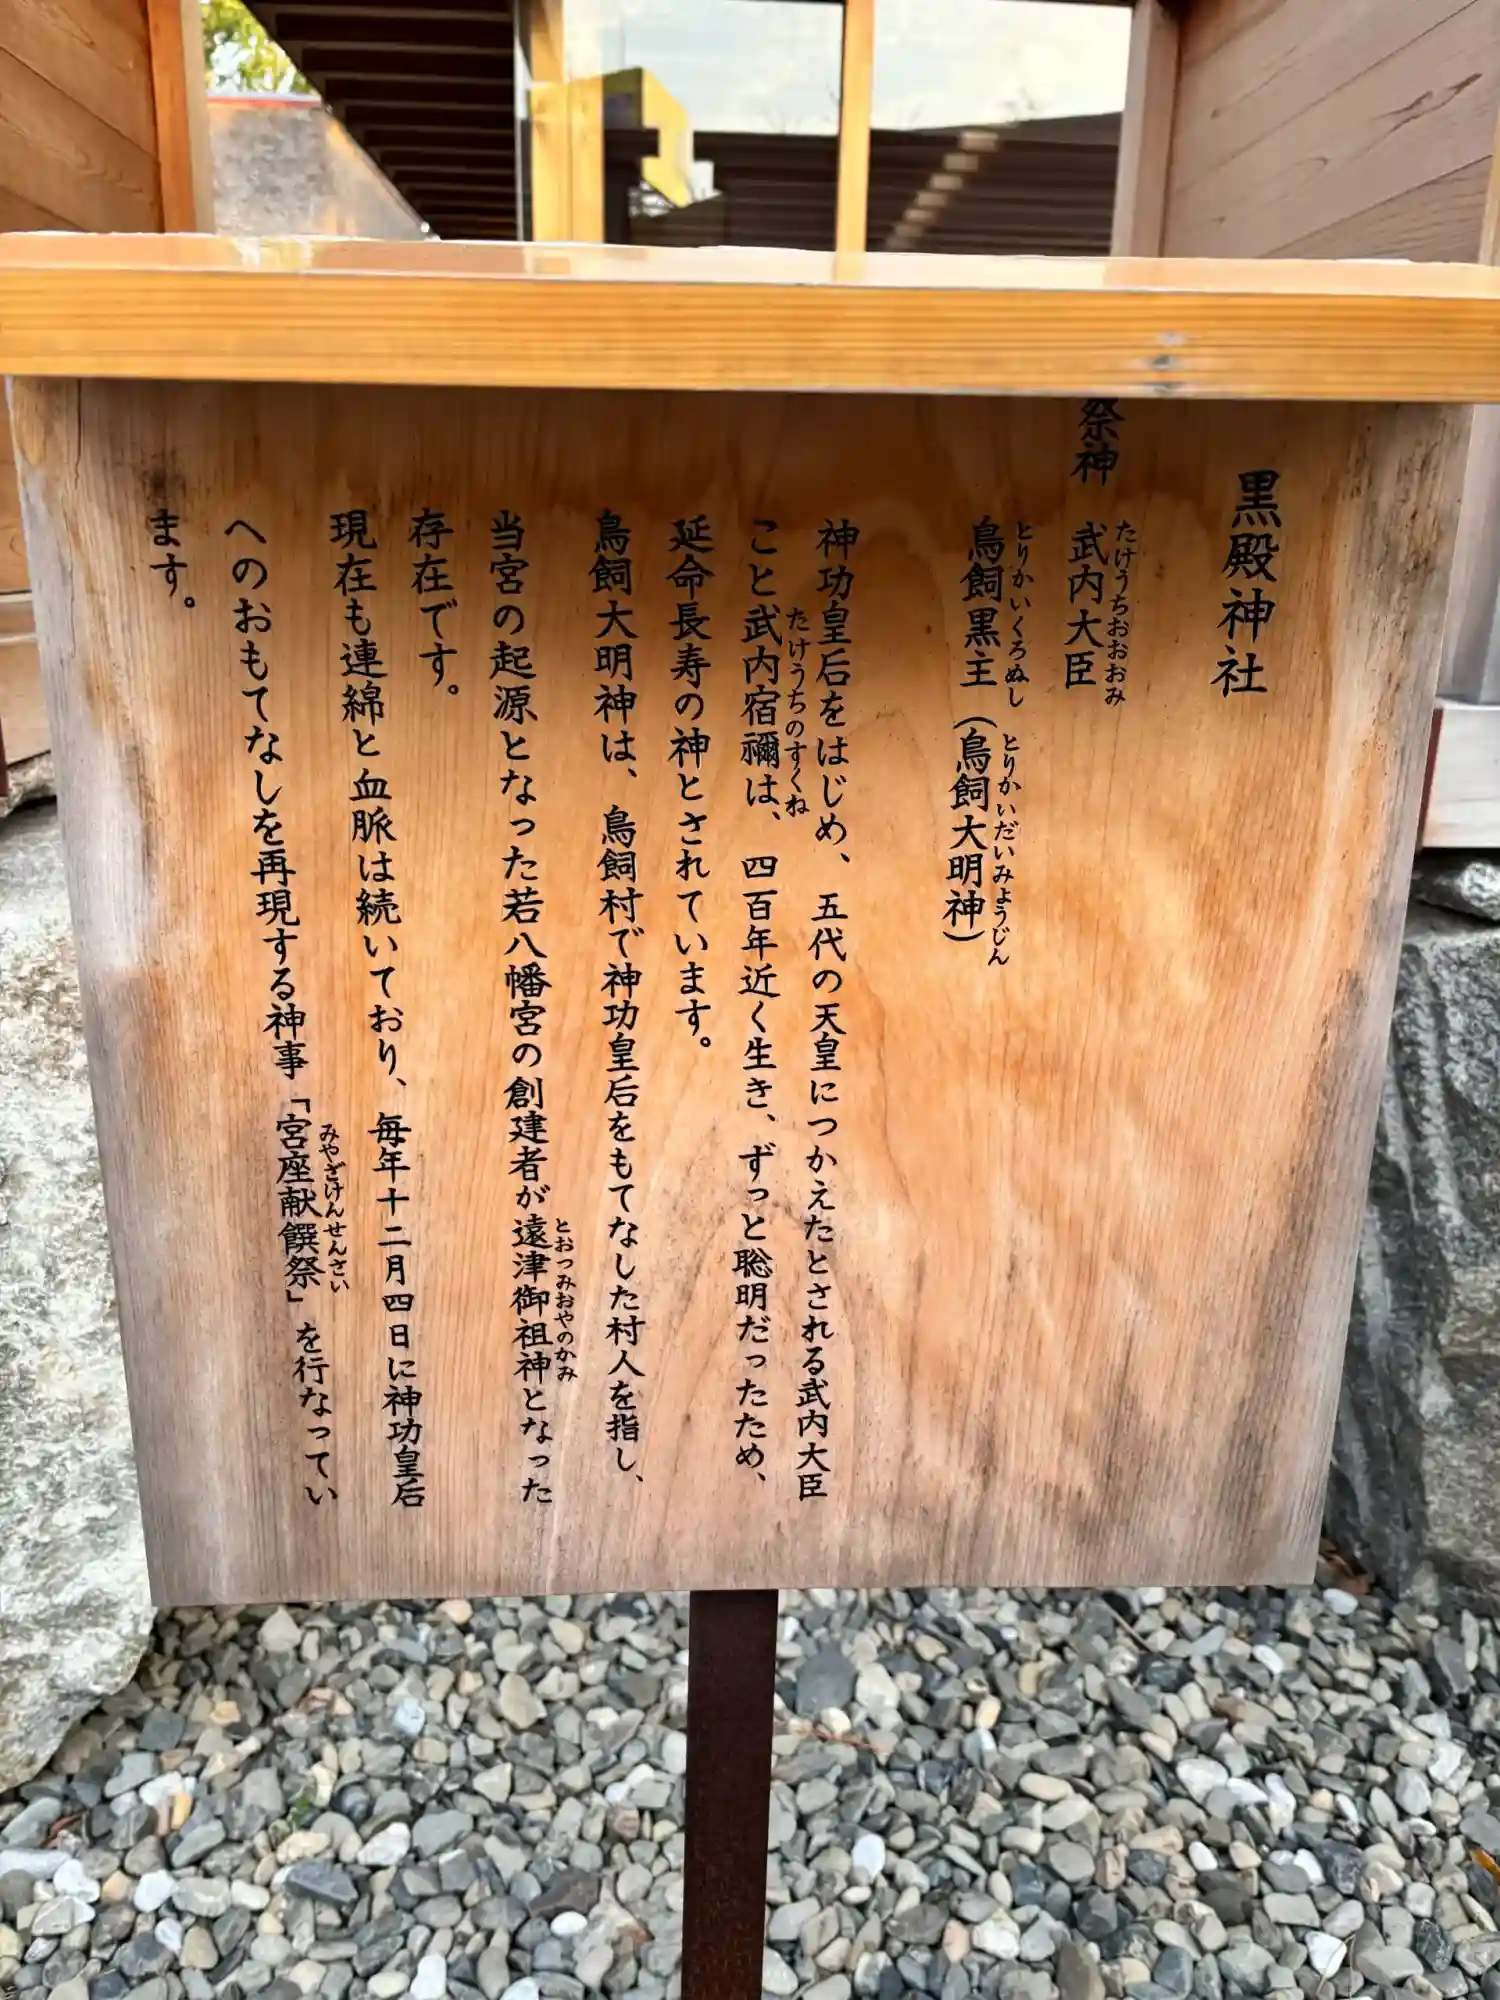 黒殿神社
祭神 武内大臣
たけうちおおおみ
鳥飼黒主（鳥飼大明神）
とりかいくろぬし とりかいだいみようじん
神功皇后をはじめ、五代の天皇につかえたとされる武内大臣
こと武内宿禰は、四百年近く生き、ずっと聡明だったため、
たけうちのすくね
延命長寿の神とされています。
鳥飼大明神は、鳥飼村で神功皇后をもてなした村人を指し、
当宮の起源となった若八幡宮の創建者が遠津御祖神となった
とおつみおやのかみ
存在です。
現在も連綿と血脈は続いており、毎年十二月四日に神功皇后
へのおもてなしを再現する神事「宮座献饌祭」を行なってい
みやざけんせんさい
ます。